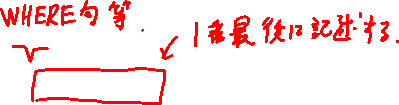 WHERE句等.
1番最後に記述する.